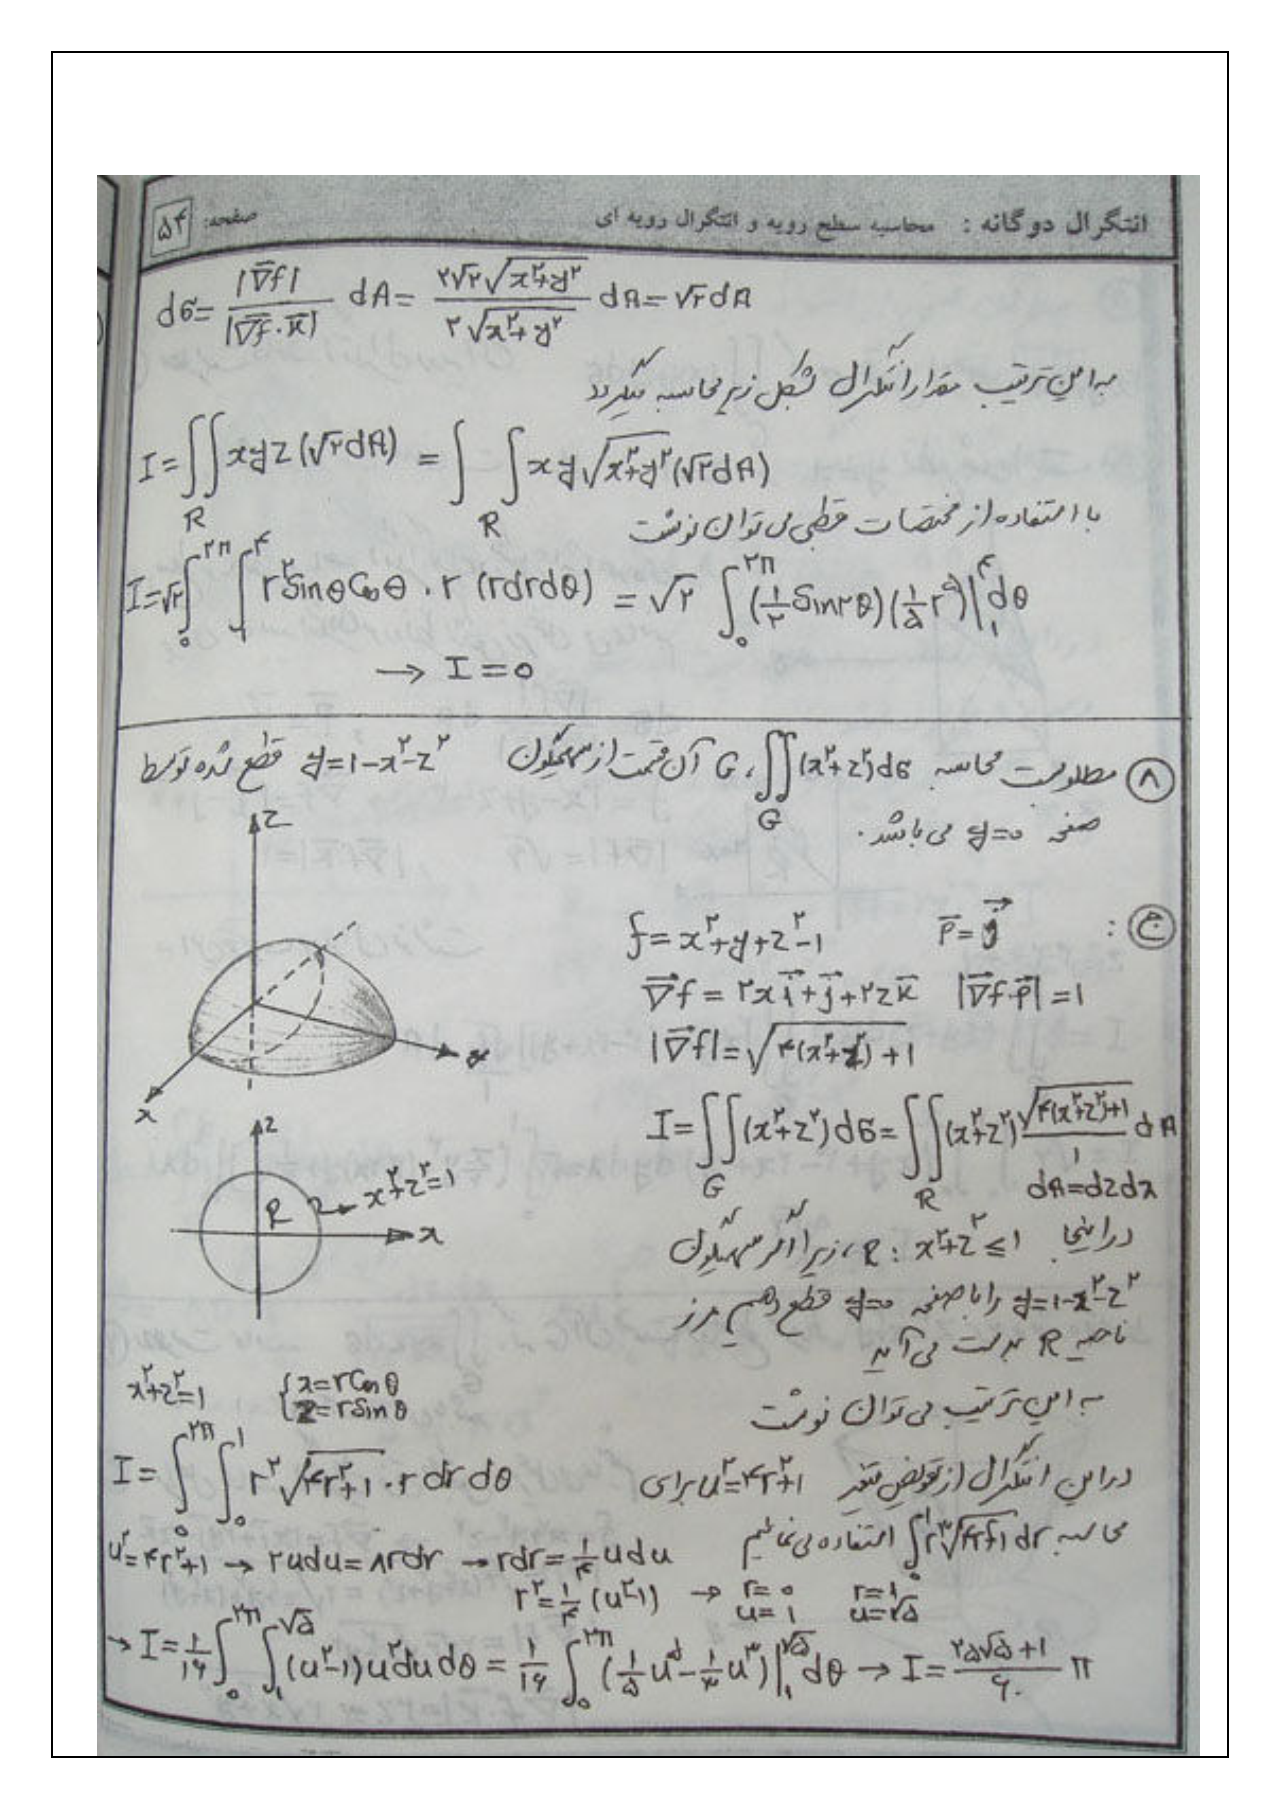 انتگرال دوگانه : محاسبه سطح رویه و انتگرال رویه ای صفحه: ۵۴
dσ = |∇⃗f| / |∇⃗f·k⃗| dA = ۲√۲√(x²+y²) / ۲√(x²+y²) dA = √۲ dA
به این ترتیب مقدار انتگرال بشکل زیر محاسبه میگردد
I = ∬_R xyz(√۲dA) = ∫∫_R xy√(x²+y²)(√۲dA)
با استفاده از مختصات قطبی می توان نوشت
I = √۲ ∫_۰^۲π ∫_۱^۴ r² Sinθ Cosθ . r (rdrdθ) = √۲ ∫_۰^۲π (۱/۲ Sin۲θ)(۱/۵ r^۵)|_۱^۴ dθ
→ I = ۰
۸ مطلوبست محاسبه ∬_G (x²+z²)dσ ، G آن قسمت از سهمیگون y=۱-x²-z² قطع شده توسط
صفحه y=۰ می باشد.
z
y
x
ج :
f = x²+y+z²-۱ p⃗ = j⃗
∇⃗f = ۲x i⃗ + j⃗ + ۲z k⃗ |∇⃗f·p⃗| = ۱
|∇⃗f| = √(۴(x²+z²)+۱)
I = ∬_G (x²+z²)dσ = ∬_R (x²+z²) √(۴(x²+z²)+۱) / ۱ dA
dA = dzdx
z
R
x²+z²=۱
x
در اینجا R : x²+z² ≤ ۱ ، زیرا اگر سهمیگون
y=۱-x²-z² را با صفحه y=۰ قطع دهیم مرز
ناحیه R بدست می آید
x²+z²=۱ { x = rCosθ
z = rSinθ
به این ترتیب می توان نوشت
I = ∫_۰^۲π ∫_۰^۱ r² √(۴r²+۱) . r dr dθ
در این انتگرال از تعویض متغیر u²=۴r²+۱ برای
محاسبه ∫_۰^۱ r³√(۴r²+۱) dr استفاده می نمائیم
u² = ۴r²+۱ → ۲udu = ۸rdr → rdr = ۱/۴ udu
r² = ۱/۴ (u²-۱) → r=۰ r=۱
u=۱ u=√۵
→ I = ۱/۱۶ ∫_۰^۲π ∫_۱^√۵ (u²-۱)u²du dθ = ۱/۱۶ ∫_۰^۲π (۱/۵ u^۵ - ۱/۳ u³)|_۱^√۵ dθ → I = (۲۵√۵+۱)/۶۰ π